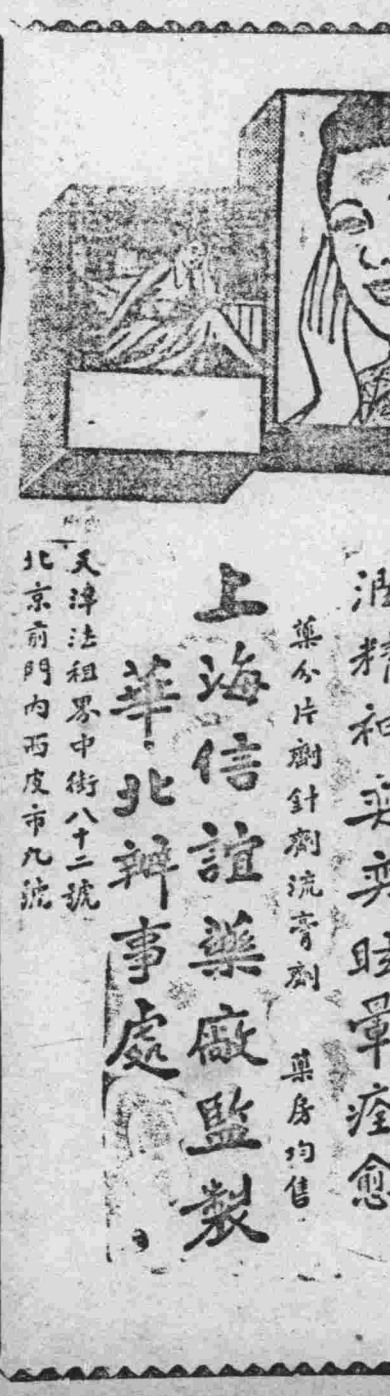 精神奕奕眩暈痊愈
藥分片劑針劑流膏劑 藥房均售
上海信誼藥廠監製
華北辦事處
天津法租界中街八十二號
北京前門内西皮市九號